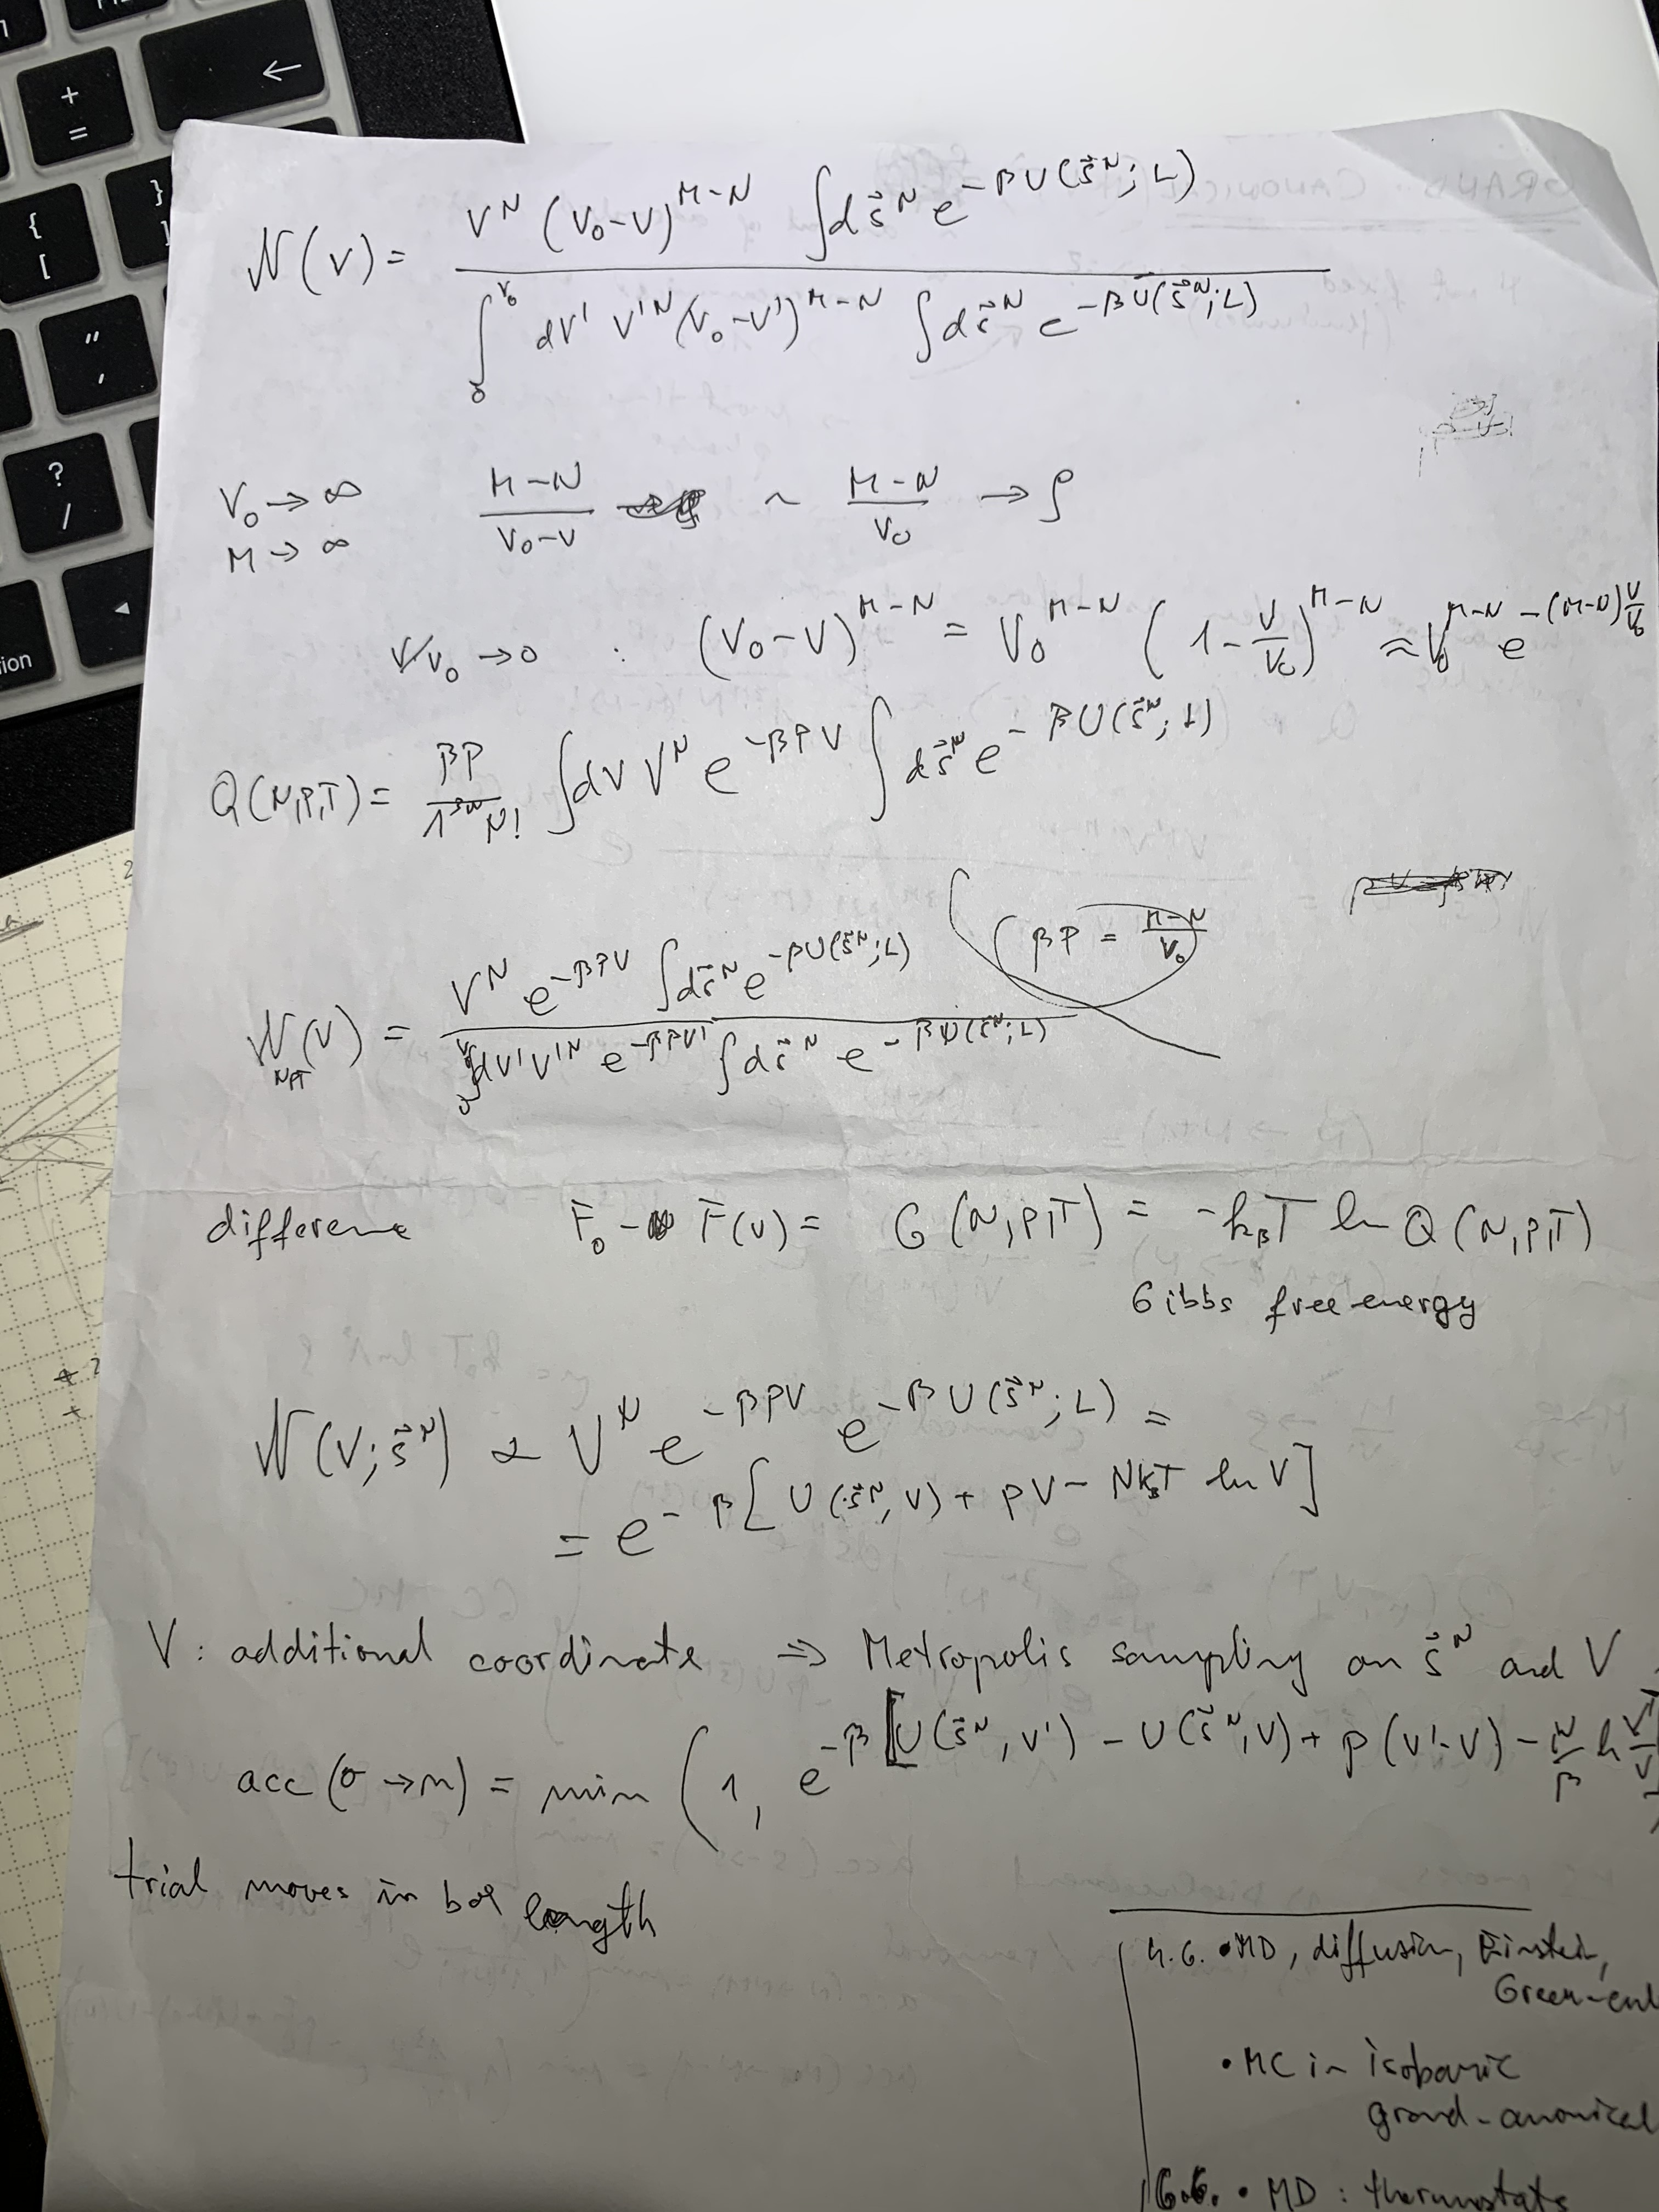 𝒩(V) = V^N (V₀-V)^{M-N} ∫ds⃗^N e^{-βU(s⃗^N; L)} / ∫₀^{V₀} dV' V'^N (V₀-V')^{M-N} ∫ds⃗^N e^{-βU(s⃗^N; L)}
V₀ → ∞
M → ∞
(M-N)/(V₀-V) ~ (M-N)/V₀ → ρ
V/V₀ → 0 : (V₀-V)^{M-N} = V₀^{M-N} (1 - V/V₀)^{M-N} ≈ V₀^{M-N} e^{-(M-N) V/V₀}
Q(N,P,T) = βP/(Λ^{3N} N!) ∫dV V^N e^{-βPV} ∫ds⃗^N e^{-βU(s⃗^N; L)}
(βP = (M-N)/V₀
𝒩_{NPT}(V) = V^N e^{-βPV} ∫ds⃗^N e^{-βU(s⃗^N; L)} / ∫₀^{V₀} dV' V'^N e^{-βPV'} ∫ds⃗^N e^{-βU(s⃗^N; L)}
difference F₀ - F(V) = G(N,P,T) = -k_BT ln Q(N,P,T)
Gibbs free energy
𝒩(V; s⃗^N) ∝ V^N e^{-βPV} e^{-βU(s⃗^N; L)} =
= e^{-β[U(s⃗^N, V) + PV - Nk_BT ln V]}
V : additional coordinate ⇒ Metropolis sampling on s⃗^N and V.
acc(o → n) = min (1, e^{-β[U(s⃗^N, V') - U(s⃗^N, V) + P(V'-V) - N/β ln V'/V]}
trial moves in box length
4.6. • MD, diffusion, Einstein,
Green-
• MC in isobaric
grand-canonical
6.6. • MD : thermostats
+
=
←
{
[
}
]
"
'
?
/
tion